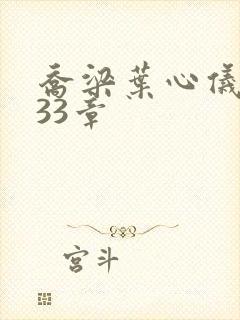 喬梁葉心儀
33章
宮斗